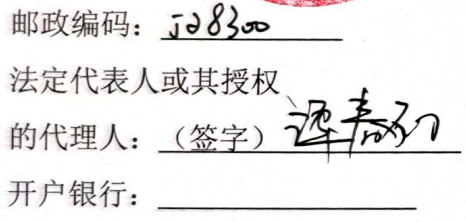 邮政编码：528300
法定代表人或其授权
的代理人：（签字）
开户银行：